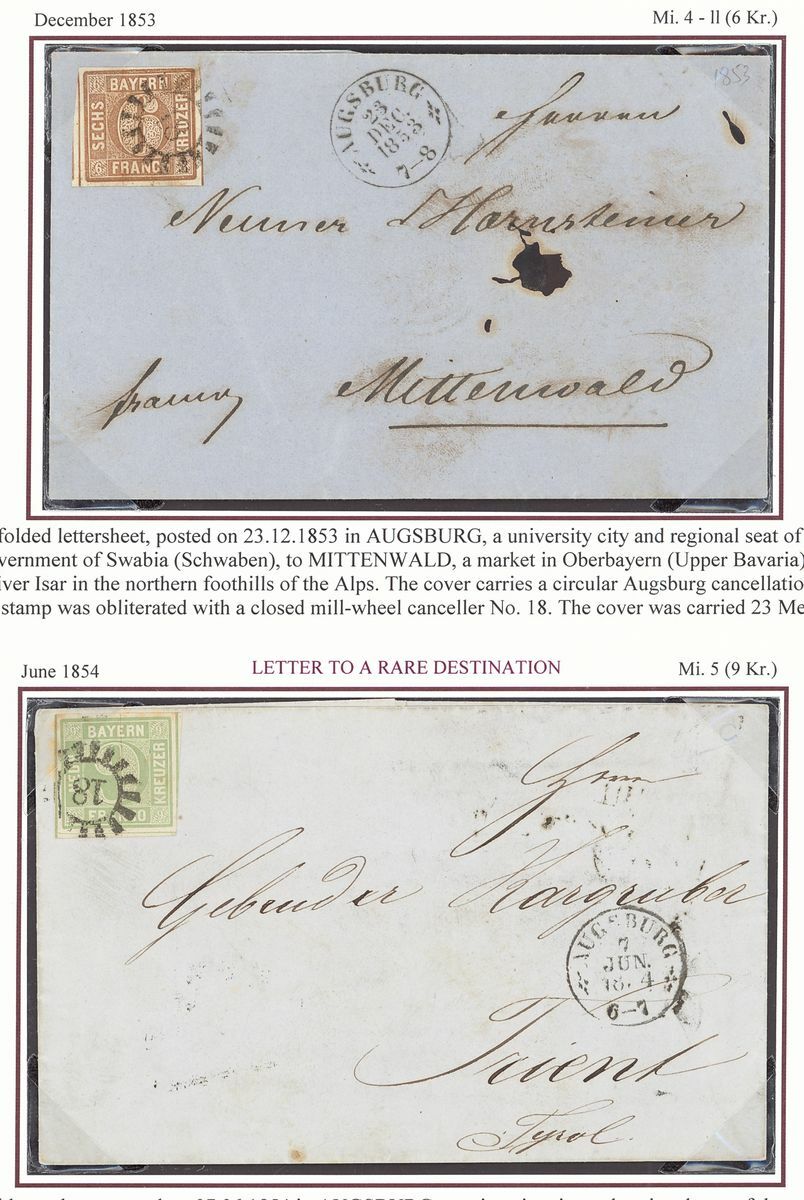 December 1853
Mi. 4 - ll (6 Kr.)
BAYERN
SECHS
KREUZER
FRANCO
6
AUGSBURG
23
DEC.
1853
7-8
1853
Herren
Neuner & Hornsteiner
Mittenwald
franco
folded lettersheet, posted on 23.12.1853 in AUGSBURG, a university city and regional seat of
vernment of Swabia (Schwaben), to MITTENWALD, a market in Oberbayern (Upper Bavaria)
iver Isar in the northern foothills of the Alps. The cover carries a circular Augsburg cancellatio
stamp was obliterated with a closed mill-wheel canceller No. 18. The cover was carried 23 Me
June 1854
LETTER TO A RARE DESTINATION
Mi. 5 (9 Kr.)
BAYERN
KREUZER
18
Herrn
Gebruder Kargruber
AUGSBURG
7
JUN.
18 4
6-7
Trient
Tyrol.